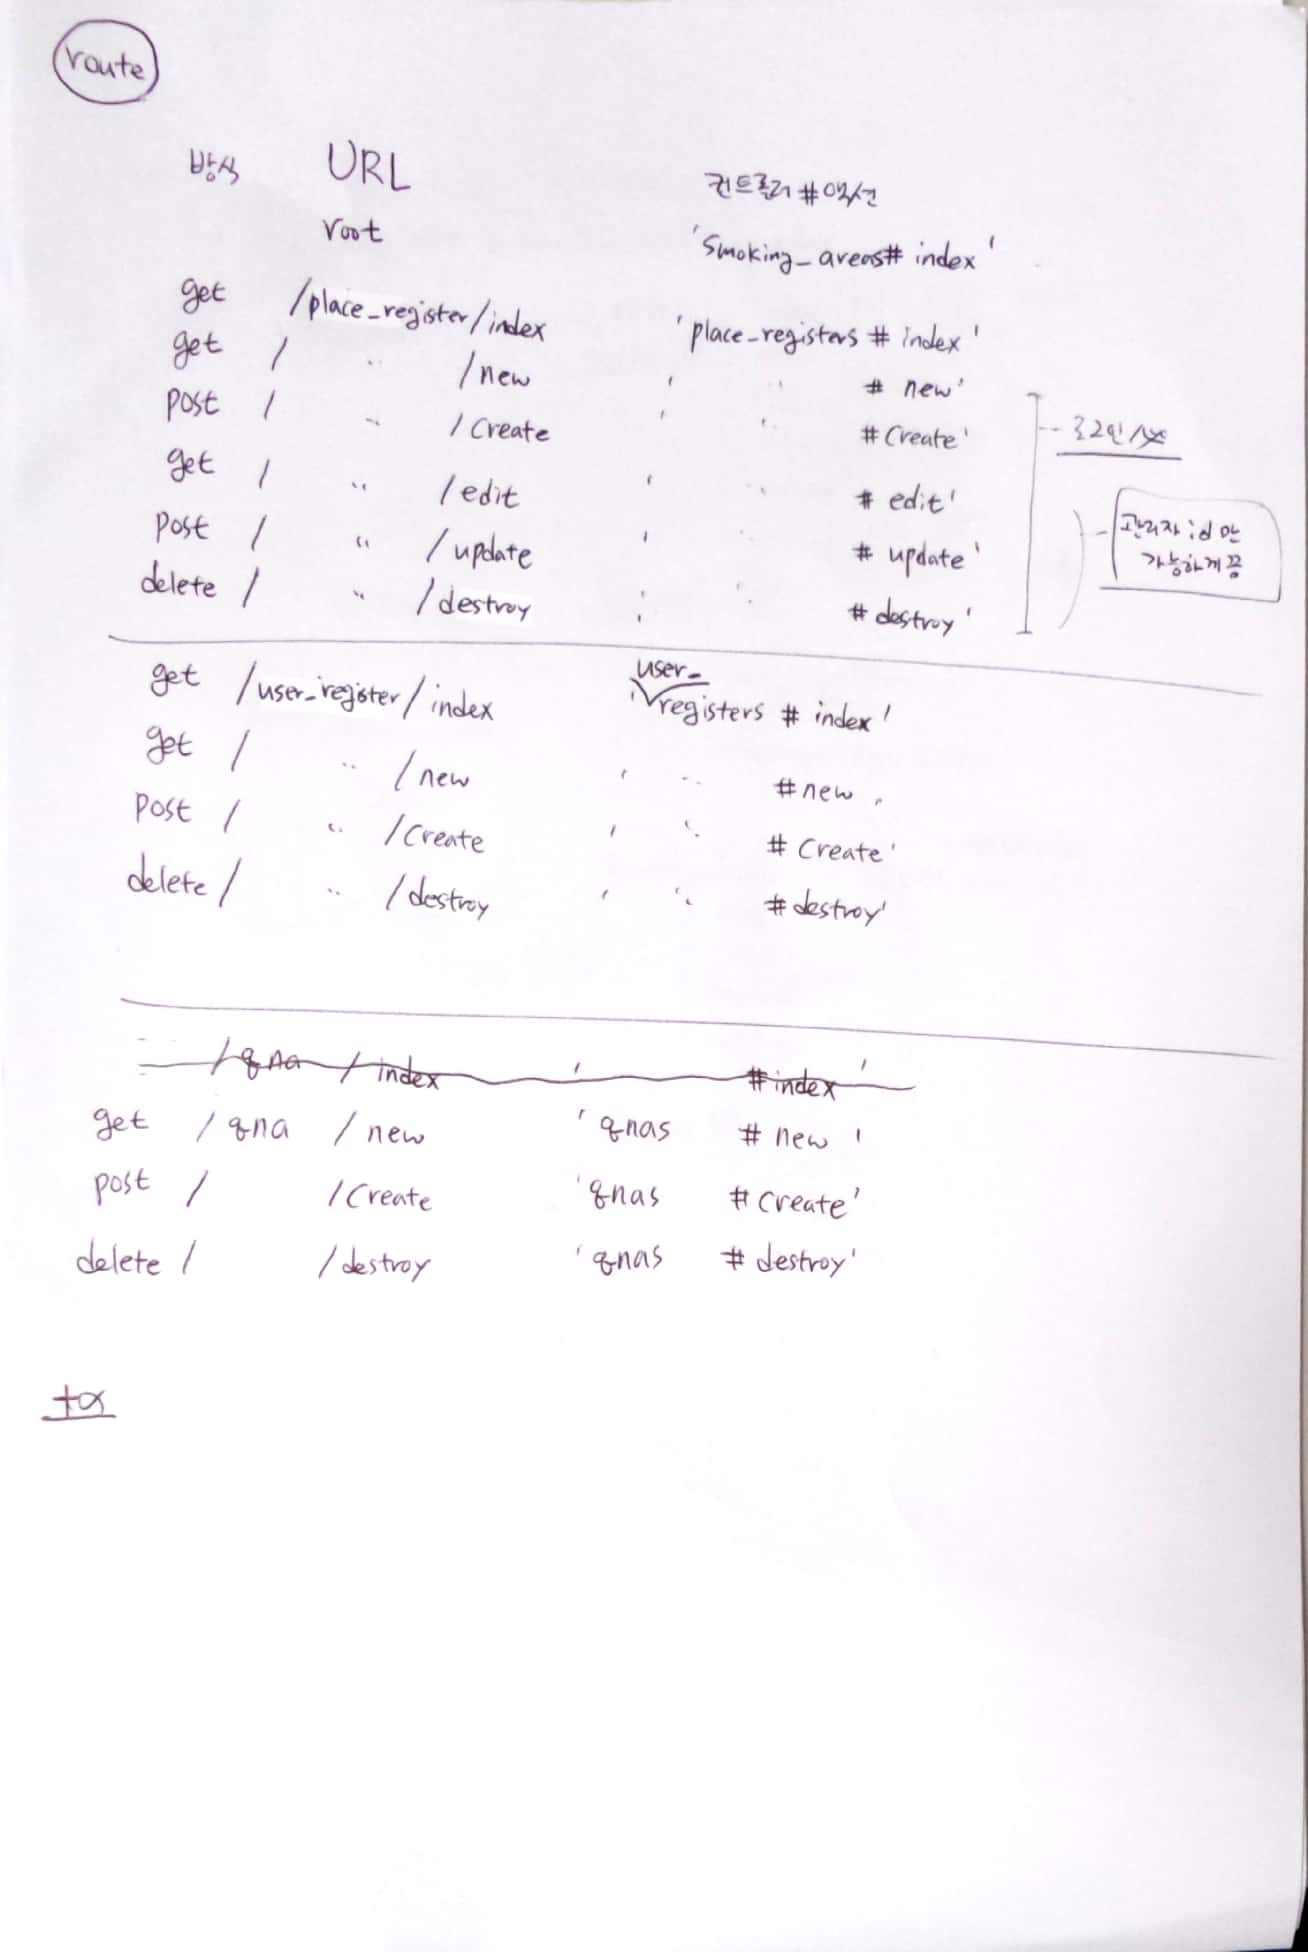 route
방식 URL 컨트롤러#액션
root 'smoking_areas# index'
get /place_register/index 'place_registers # index'
get / " /new ' " # new'
post / " /Create ' " #Create'
get / " /edit ' " # edit'
post / " /update ' " # update'
delete / " /destroy ' " # destroy'
로그인 시
관리자 id 만
가능하게끔
get /user_register/index 'user_registers # index'
get / " /new ' " #new '
post / " /Create ' " # Create'
delete / " /destroy ' " # destroy'
/qna /index ' #index '
get /qna /new 'qnas # new '
post / /Create 'qnas # Create'
delete / /destroy 'qnas # destroy'
+α